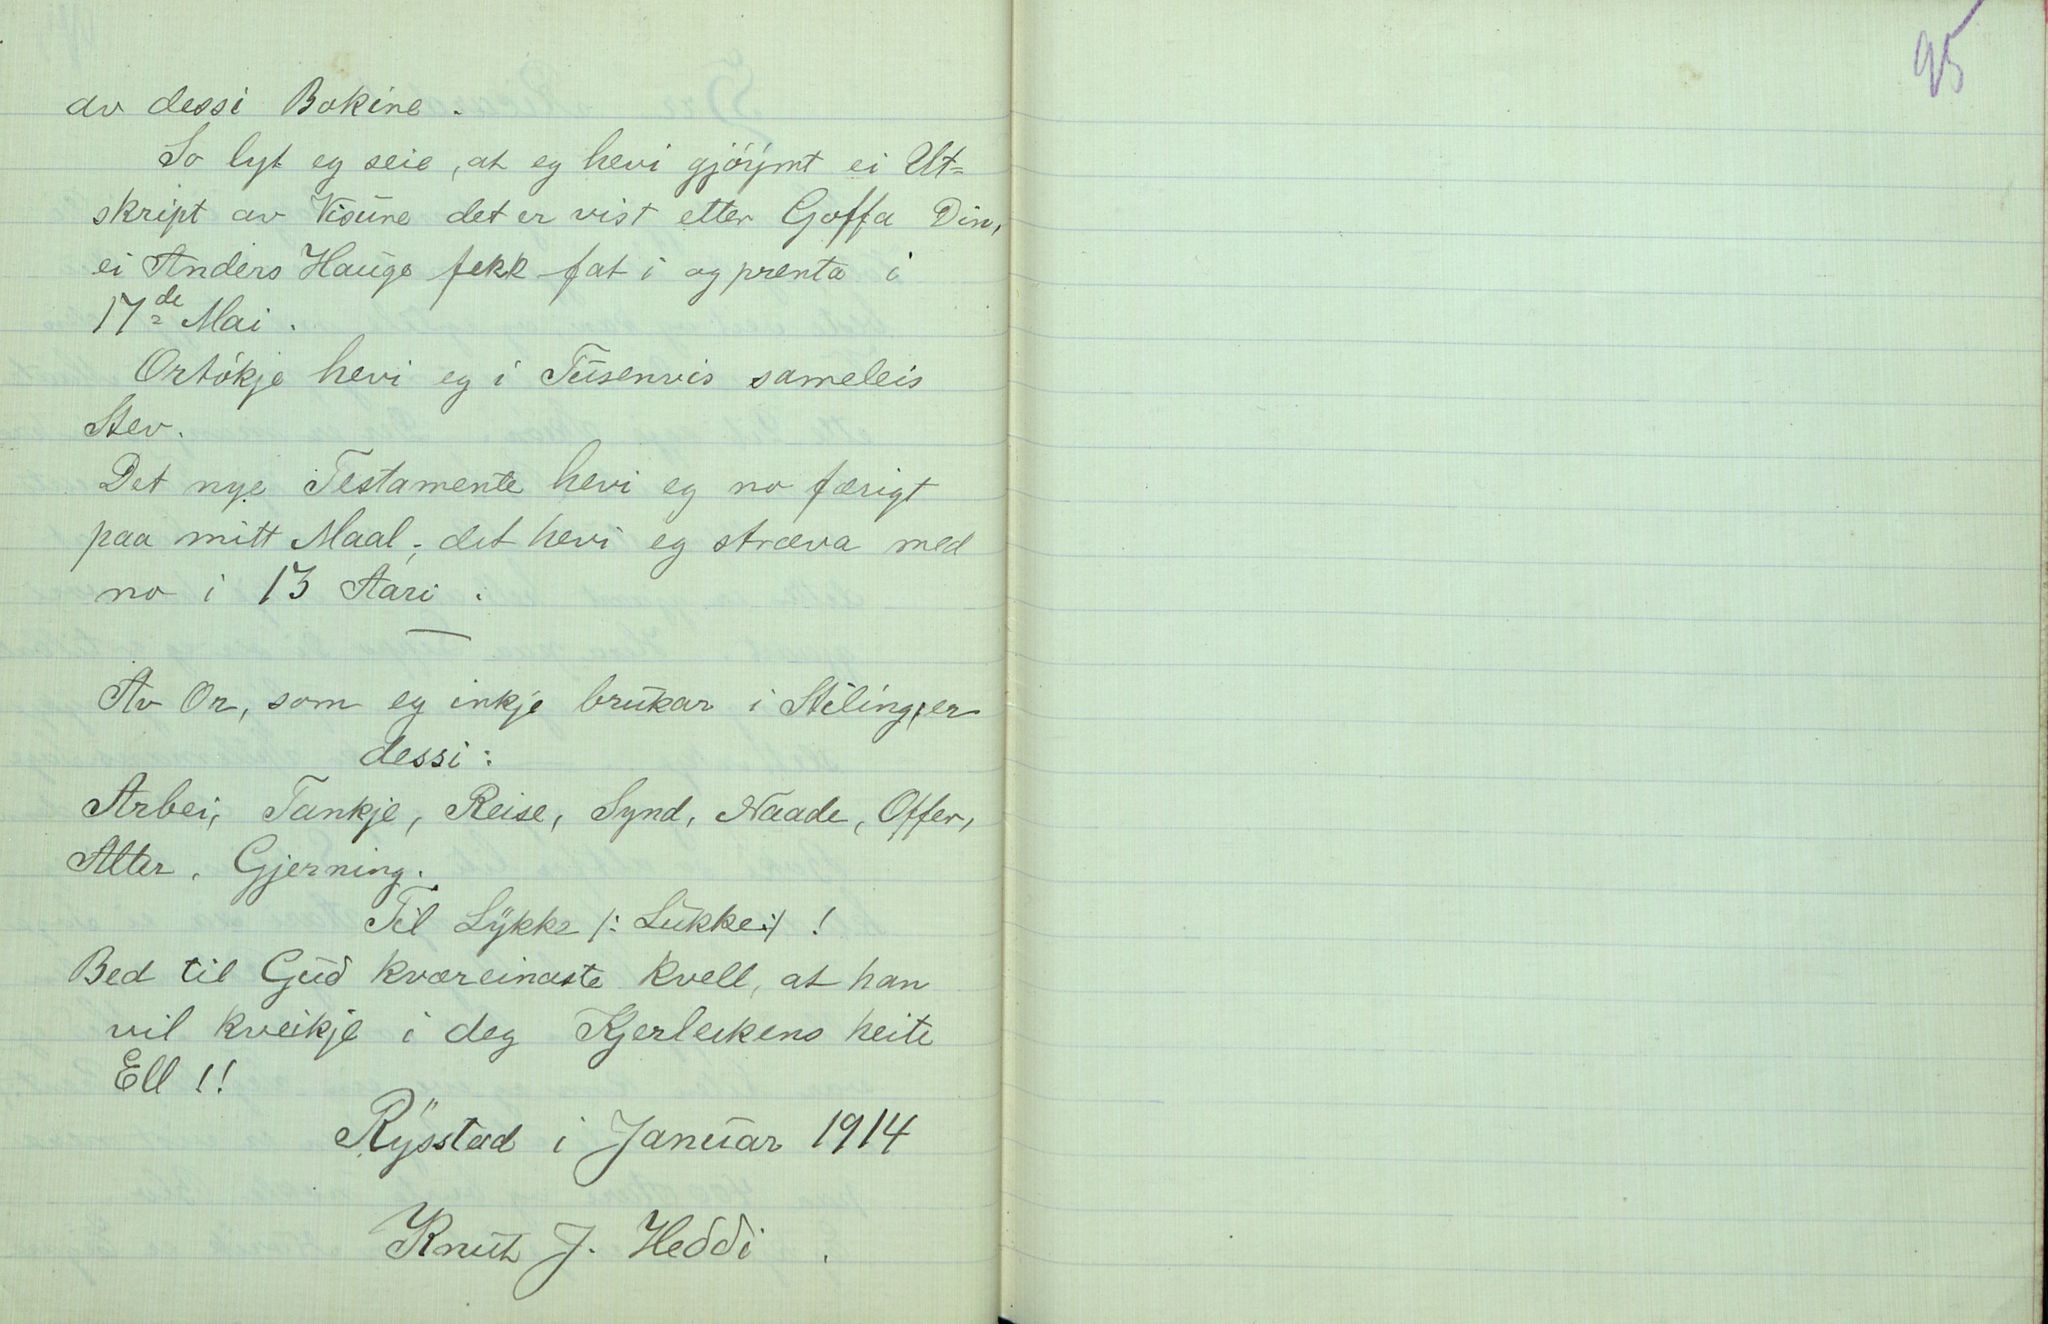 95
av dessi Bokine.
So lyt eg seie, at eg hevi gjöymt ei Ut=
skript av Visune det er vist etter Goffa Din,
ei Anders Hauge fekk fat i og prenta i
17de Mai.
Ortökje hevi eg i Tusenvis sameleis
Stev.
Det nye Testamente hevi eg no færigt
paa mitt Maal; det hevi eg stræva med
no i 13 Aari.
Av Or, som eg inkje brukar i Stiling, er
dessi:
Arbei, Tankje, Reise, Synd, Naade, Offer,
Alter, Gjerning.
Til Lykke /: Lukke :/ !
Bed til Guð kværeinaste kvell, at han
vil kveikje i deg Kjerleikens heite
Ell !!
Rysstad i Januar 1914
Knut J. Heðði.